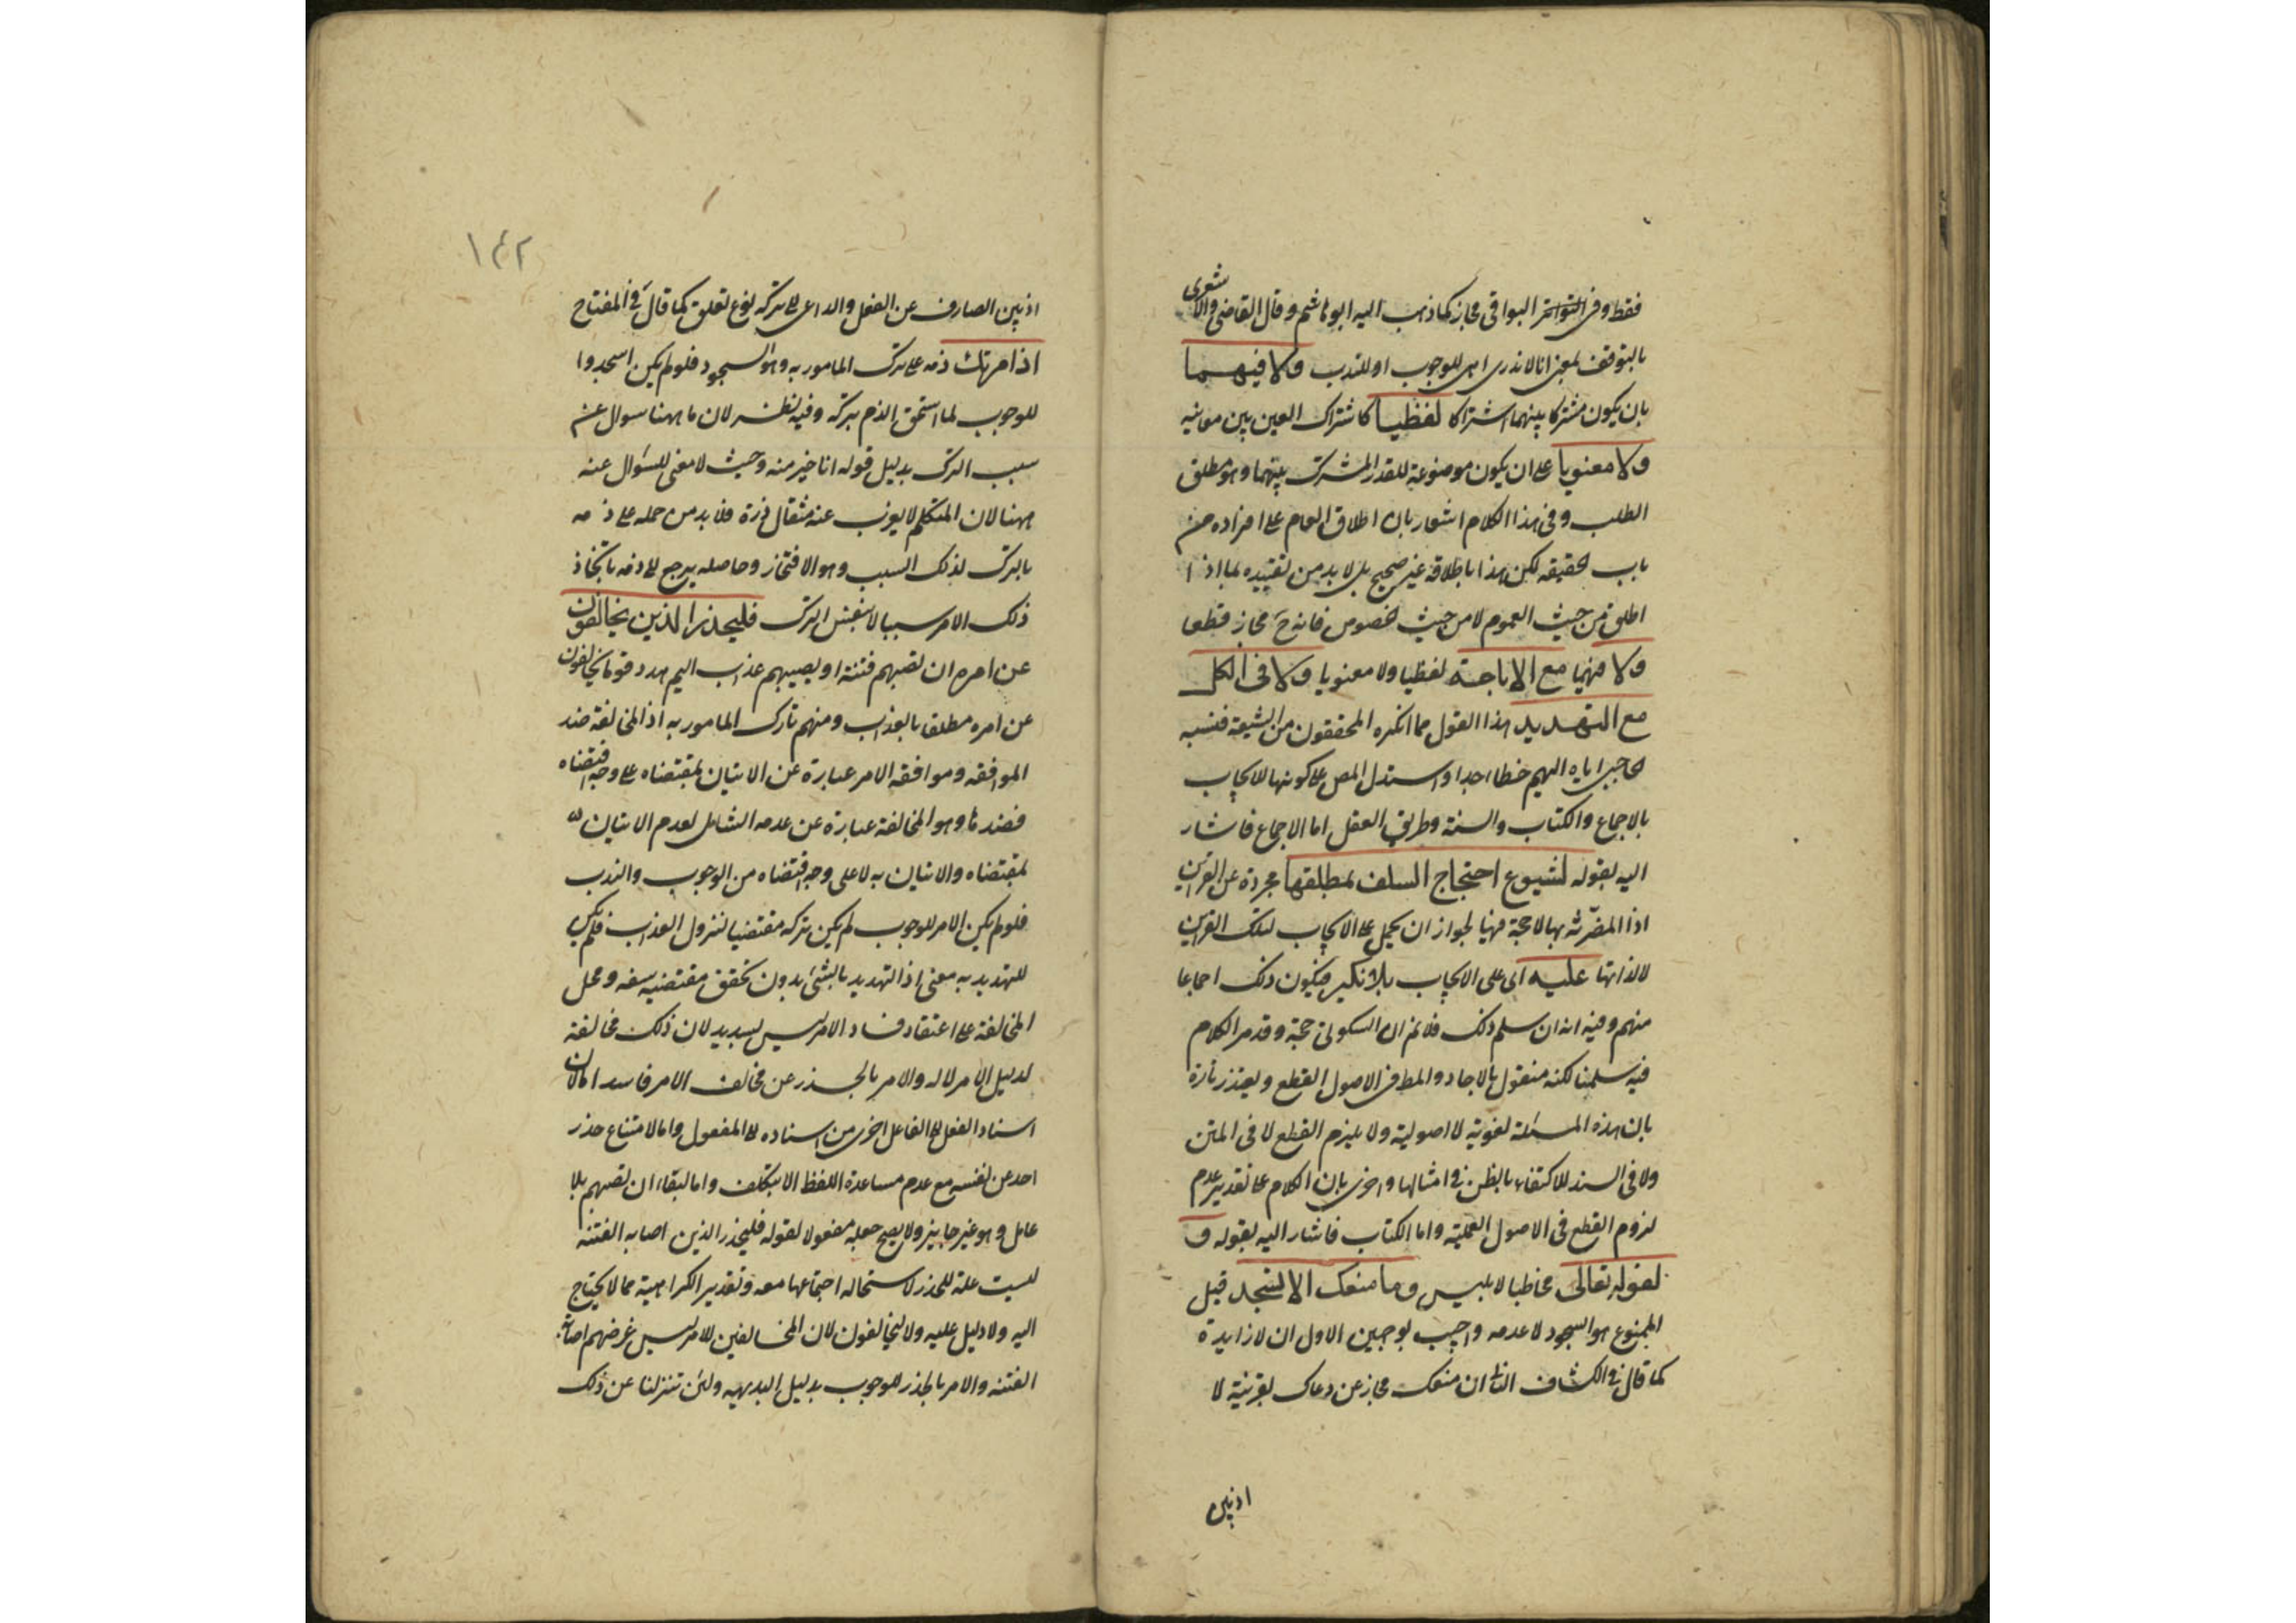 فقط وفى البواقى مجاز كما ذهب اليه ابو هاشم وقال القاضى والاشعرى
بالتوقف بمعنى انا لا ندرى اهى للوجوب او للندب ولا فيهما
بان يكون مشتركا بينهما اشتراكا لفظيا كاشتراك العين بين معانيه
ولا معنويا على ان يكون موضوعة للقدر المشترك بينهما وهو مطلق
الطلب وفى هذا الكلام اشعار بان اطلاق العام على افراده من
باب الحقيقه لكن هذا باطلاقه غير صحيح بل لا بد من تقييده بما اذا
اطلق من حيث العموم لا من حيث الخصوص فانه ح مجاز قطعا
ولا فيهما مع الاباحة لفظيا ولا معنويا ولا فى الكل
مع التهديد هذا القول مما انكره المحققون من الشيعة فنسبه
الحاجبى اياه اليهم خطا، جدا واستدل المص على كونها للايجاب
بالاجماع والكتاب والسنة وطريق العقل اما الاجماع فاشار
اليه بقوله لشيوع احتجاج السلف بمطلقها مجردة عن القراين
اذ المقترنة بها لا حجة فيها لجواز ان يحمل على الايجاب لتلك القراين
لا لذاتها عليه اى على الايجاب بلا نكير فيكون ذلك اجماعا
منهم وفيه انه ان سلم ذلك فلا نم ان السكوتى حجة وقد مر الكلام
فيه سلمنا لكنه منقول بالاحاد والمط فى الاصول القطع ويعتذر تارة
بان هذه المسئلة لغوية لا اصولية ولا يلزم القطع لا فى المتن
ولا فى السند للاكتفاء بالظن فى امثالها واخرى بان الكلام على تقدير عدم
لزوم القطع فى الاصول العملية واما الكتاب فاشار اليه بقوله و
لقوله تعالى مخاطبا لابليس وما منعك الا تسجد قيل
الممنوع هو السجود لا عدمه واجيب بوجهين الاول ان لا زايدة
كما قال فى الكشاف الثانى ان منعك مجاز عن دعاك بقرينة لا
اذ بين
١٤٢
اذ بين الصارف عن الفعل والداعى الى تركه نوع تعلق كما قال فى المفتاح
اذ امرتك ذمه على ترك المامور به وهو السجود فلو لم يكن اسجدوا
للوجوب لما استحق الذم بتركه وفيه نظر لان ما ههنا سوال عن
سبب الترك بدليل قوله انا خير منه وحيث لا معنى للسؤال عنه
ههنا لان المتكلم لا يعزب عنه مثقال ذرة فلا بد من حمله على ذمه
بالترك لذلك السبب وهو الافتخار وحاصله يرجع الى ذمه باتخاذ
ذلك الامر سببا لا بنفس الترك فليحذر الذين يخالفون
عن امره ان تصيبهم فتنة او يصيبهم عذاب اليم هدد قوما يخالفون
عن امره مطلقا بالعذاب ومنهم تارك المامور به اذ المخالفة ضد
الموافقه وموافقه الامر عبارة عن الاتيان بمقتضاه على وجه اقتضاه
فضدها وهو المخالفة عبارة عن عدمه الشامل لعدم الاتيان
بمقتضاه والاتيان به لا على وجه اقتضاه من الوجوب والندب
فلو لم يكن الامر للوجوب لم يكن تركه مقتضيا لنزول العذاب فلم يكن
للتهديد به معنى اذ التهديد بالشئ بدون تحقق مقتضيه سفه وحمل
المخالفة على اعتقاد فساد الامر ليس بسديد لان ذلك مخالفة
لدليل الامر لا له والامر بالحذر عن مخالف الامر فاسد اما لان
اسناد الفعل الى الفاعل اخرى من اسناده الى المفعول واما لامتناع حذر
احد عن نفسه مع عدم مساعدة اللفظ الا بتكلف واما لبقاء ان تصيبهم بلا
عامل وهو غير جايز ولا يصح جعله مفعولا لقوله فليحذر الذين اصابه الفتنه
ليست علة للحذر لاستحاله اجتماعها معه وتقدير الكراهية مما لا يحتاج
اليه ولا دليل عليه ولا ليخالفون لان المخالفين للامر ليس غرضهم اصابه
الفتنه والامر بالحذر للوجوب بدليل البديهيه ولئن تنزلنا عن ذلك